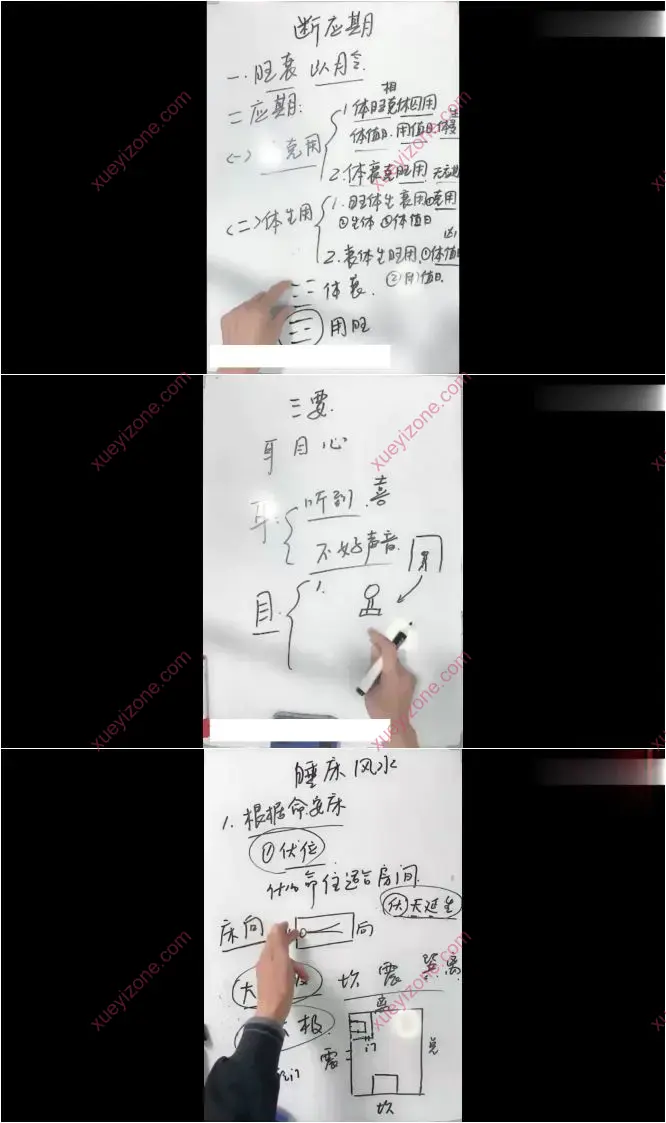 断应期
一.旺衰 以月令.
二应期:
(一) 克用
相
1.体旺克休囚用
体值日.用值日.体
2.体衰克旺用.
(二)体生用
1.旺体生衰用 克用
①生体 ②体值日
凶
2.衰体生旺用.①体值日
②用值日.
体衰.
用旺
三要.
耳目心
耳:
听到.喜
不好声音.
目:
1.
睡床风水
1.根据命安床
①伏位
什么命住适合房间.
伏天延生
床向
向
大
坎 震 巽 离
极.
离
门
震
兑
门
坎
xueyizone.com
xueyizone.com
xueyizone.com
xueyizone.com
xueyizone.com
xueyizone.com
xueyizone.com
xueyizone.com
xueyizone.com